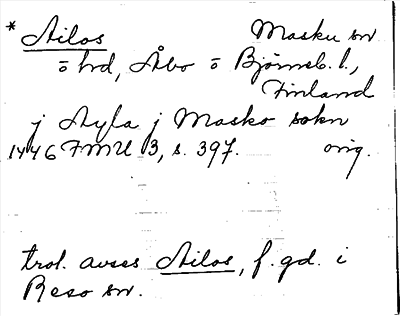 * Ailos Masku sn
ö hrd, Åbo ö Björneb. l.,
Finland
j Ayla j Masko sokn
1446 FMU 3, s. 397. orig.
trol. avses Ailos, f. gd. i
Reso sn.